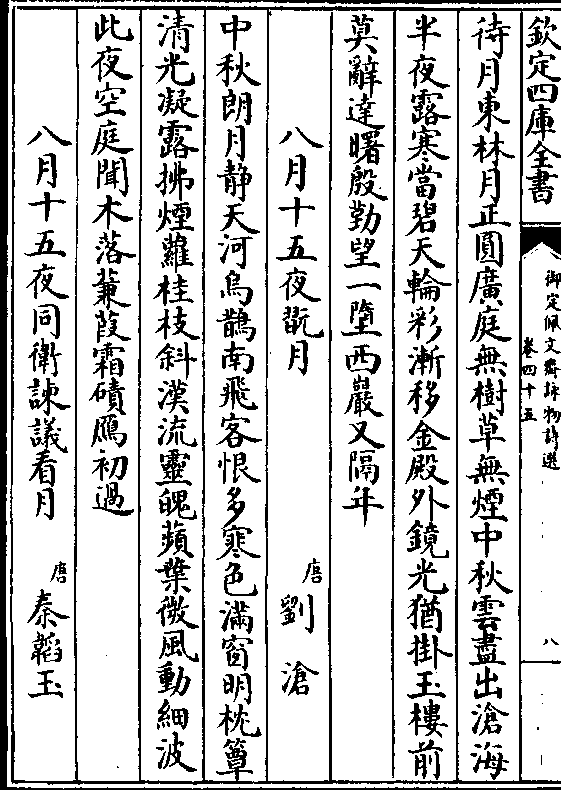 欽定四庫全書
御定佩文齋詠物詩選
卷四十五
八
待月東林月正圓廣庭無樹草無煙中秋雲盡出滄海
半夜露寒當碧天輪彩漸移金殿外鏡光猶掛玉樓前
莫辭達曙殷勤望一墮西巖又隔年
八月十五夜翫月 唐 劉滄
中秋朗月静天河烏鵲南飛客恨多寒色滿窗明枕簟
清光凝露拂煙蘿桂枝斜漢流靈魄蘋葉微風動細波
此夜空庭聞木落蒹葭霜磧鴈初過
八月十五夜同衛諫議看月 唐 秦韜玉